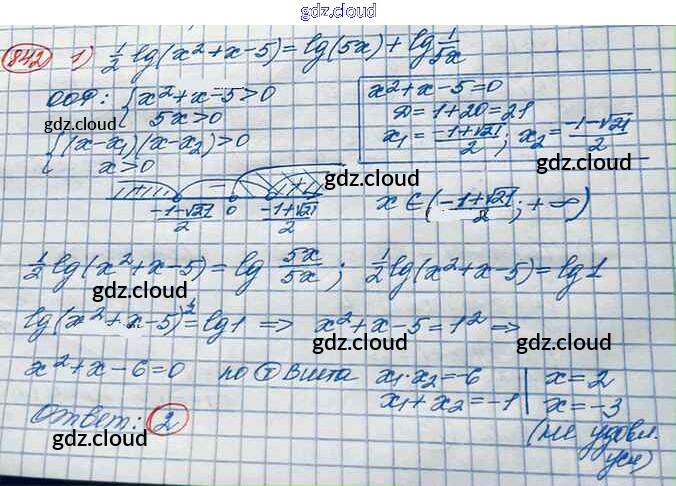 gdz.cloud
842 1) 1/2 lg(x²+x-5) = lg(5x) + lg 1/5x
ООФ: { x²+x-5>0
5x>0
gdz.cloud
{ (x-x₁)(x-x₂)>0
x>0
x²+x-5=0
D=1+20=21
x₁ = (-1+√21)/2 ; x₂ = (-1-√21)/2
gdz.cloud
+ − +
gdz.cloud
(-1-√21)/2 0 (-1+√21)/2
x ∈ ((-1+√21)/2 ; +∞)
gdz.cloud
1/2 lg(x²+x-5) = lg 5x/5x ; 1/2 lg(x²+x-5) = lg1
gdz.cloud
lg(x²+x-5)^1/2 = lg1 => x²+x-5=1² =>
gdz.cloud gdz.cloud
x²+x-6=0 по Т Виета x₁·x₂=-6 | x=2
x₁+x₂=-1 | x=-3
Ответ: 2 (не удовл.
усл)
gdz.cloud gdz.cloud